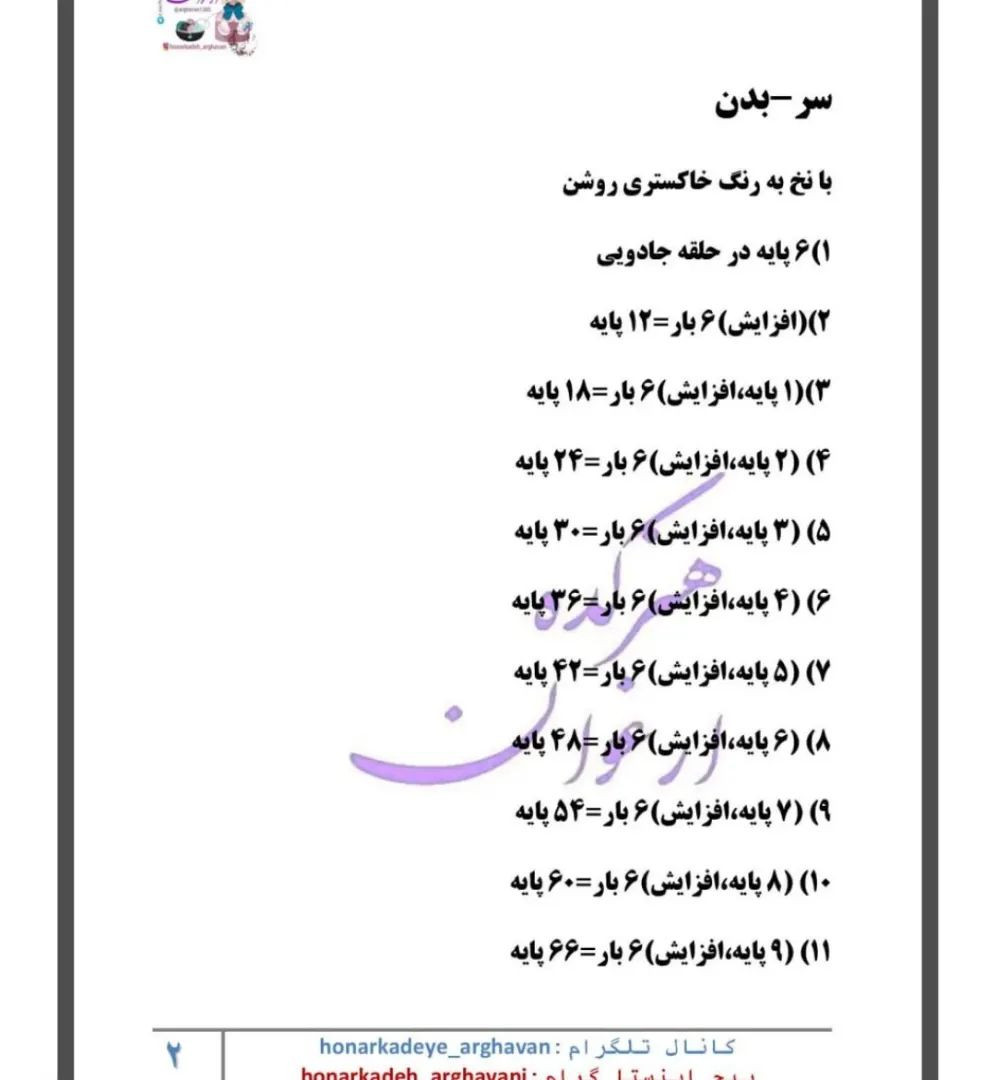 @arghavan1385
honarkadeh_arghavan
سر –بدن
با نخ به رنگ خاکستری روشن
۱)۶ پایه در حلقه جادویی
۲)(افزایش)۶ بار=۱۲ پایه
۳)(۱ پایه،افزایش)۶ بار=۱۸ پایه
۴) (۲ پایه،افزایش)۶ بار=۲۴ پایه
۵) (۳ پایه،افزایش)۶ بار=۳۰ پایه
۶) (۴ پایه،افزایش)۶ بار=۳۶ پایه
۷) (۵ پایه،افزایش)۶ بار=۴۲ پایه
۸) (۶ پایه،افزایش)۶ بار=۴۸ پایه
۹) (۷ پایه،افزایش)۶ بار=۵۴ پایه
۱۰) (۸ پایه،افزایش)۶ بار=۶۰ پایه
۱۱) (۹ پایه،افزایش)۶ بار=۶۶ پایه
هنرکده
ارغوان
کانال تلگرام : honarkadeye_arghavan
پیج اینستا گرام : honarkadeh_arghavani
۲